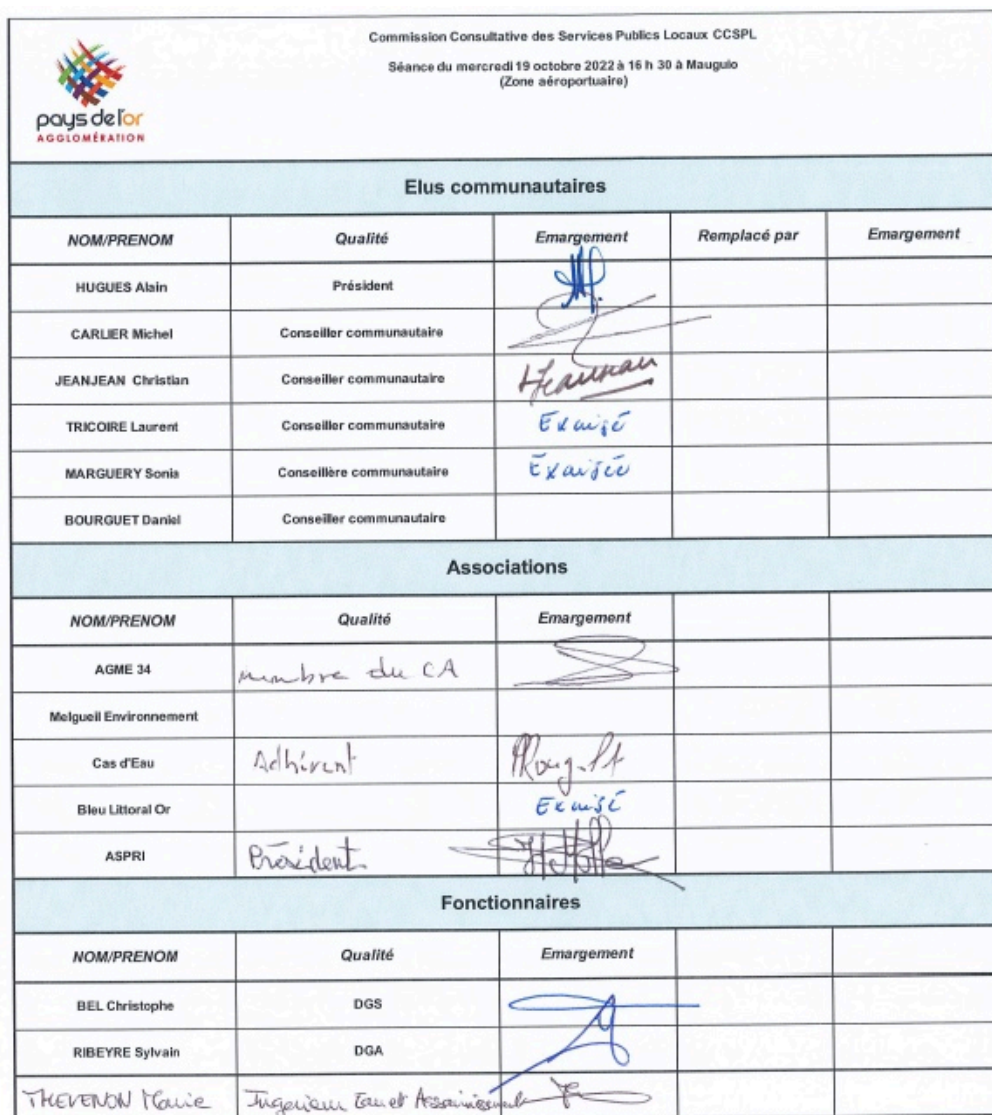 Commission Consultative des Services Publics Locaux CCSPL
Séance du mercredi 19 octobre 2022 à 16 h 30 à Mauguio
(Zone aéroportuaire)
pays de l'or
AGGLOMÉRATION
Elus communautaires
NOM/PRENOM Qualité Emargement Remplacé par Emargement
HUGUES Alain Président
CARLIER Michel Conseiller communautaire
JEANJEAN Christian Conseiller communautaire
TRICOIRE Laurent Conseiller communautaire Excusé
MARGUERY Sonia Conseillère communautaire Excusée
BOURGUET Daniel Conseiller communautaire
Associations
NOM/PRENOM Qualité Emargement
AGME 34 membre du CA
Melgueil Environnement
Cas d'Eau Adhérent
Bleu Littoral Or Excusé
ASPRI Président
Fonctionnaires
NOM/PRENOM Qualité Emargement
BEL Christophe DGS
RIBEYRE Sylvain DGA
THEVENON Marie Ingénieur Eau et Assainissement